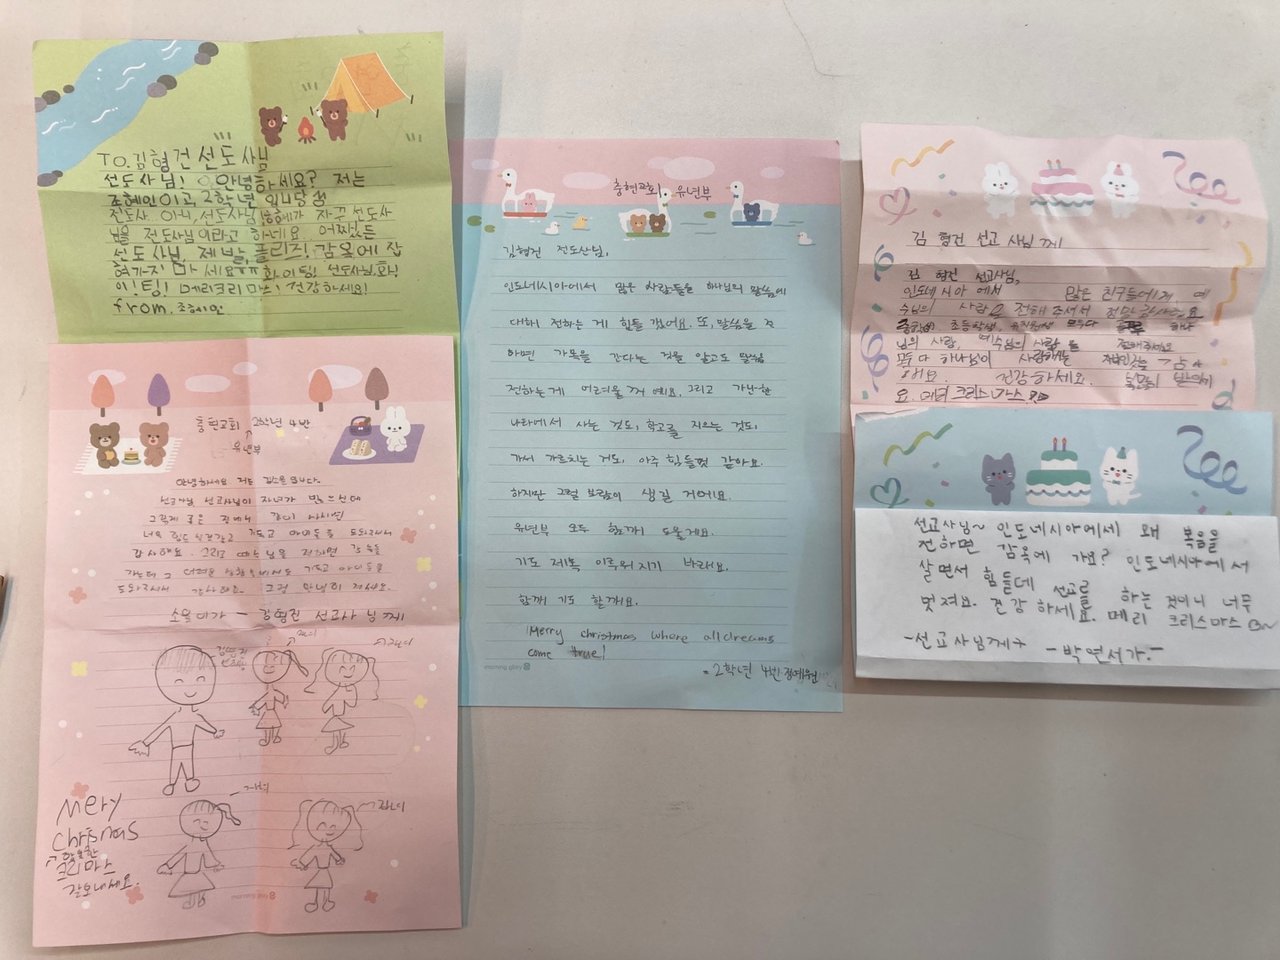 To. 김형건 선도사님
선도사님! 안녕하세요? 저는
조혜인이고, 2학년
전도사 아니, 선도사님 자꾸 선도사
님을 전도사님이라고 하네요 어쨌든
선도사님, 제발, 플리즈! 감옥에 잡
혀가지 마세요ㅠㅠ 화이팅! 선도사님, 화
이!팅! 메리크리마스! 건강하세요!
from. 조혜인
충현교회 2학년 4반
유년부
안녕하세요 저는
선교사님 선교사님이 자녀가
같이
너무 힘드실것같고 기도로 아이들을 도와주셔서
감사해요. 그리고 예수님을 전하면
가는데 그 기도로 아이들을
도와주셔서 그럼 안녕히 계세요.
소율이가 - 김형진 선교사 님께
자녀
자녀
자녀
Mery
christmas
크리마스
잘보내세요.
충현교회 유년부
김형건 전도산님,
인도네시아에서 많은 사람들을 하나님의 말씀에
대해 전하는 게 힘들 것어요. 또, 말씀을 전
하면 감옥을 간다는 것을 알고도 말씀
전하는게 어려울꺼 예요. 그리고 가난한
나라에서 사는 것도, 학교를 지으는 것도,
가서 가르치는 것도, 아주 힘들껏 같아요.
하지만 그럴 보람이 생길 거에요.
유년부 모두 함께 도울게요.
기도 제목 이루워지기 바래요.
함께 기도 할께요.
Merry christmas where all dreams
come true!
morning glory
- 2학년 4반 정예원
김 형건 선교 사님 께
김 형진 선교사님,
인도네시아 에서 많은 친구들에게, 예
수님의 사랑을 전해 주셔서 정말 감사해요
초등학생, 유치원생 모두다 하나
님의 사랑, 예수님의 사랑 을 전해주세요
모두다 하나님이 사랑하는
어요. 건강하세요. 복많이 받으세
요. 메리 크리스마스
선교사님~ 인도네시아에세 왜 복음을
전하면 감옥에 가요? 인도네시아에서
살면서 힘들데 선교를 하는 것이니 너무
멋져요. 건강 하세요. 메리 크리스마스
-선교사님께- -박연서가.-